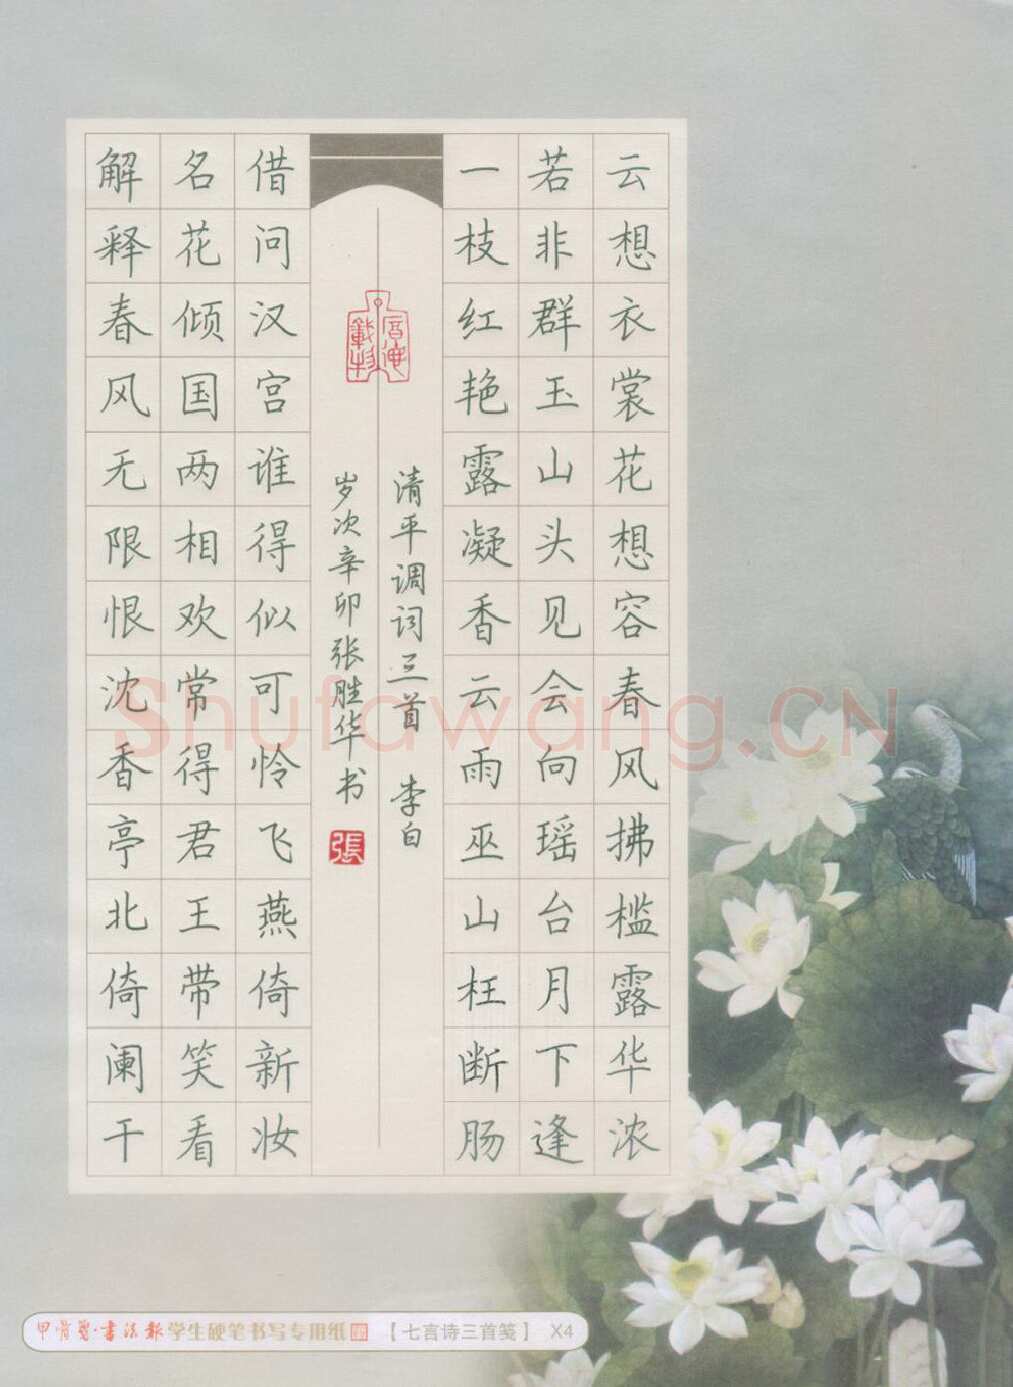 云想衣裳花想容春风拂槛露华浓
若非群玉山头见会向瑶台月下逢
一枝红艳露凝香云雨巫山枉断肠
清平调词三首 李白
岁次辛卯张胜华书
張
借问汉宫谁得似可怜飞燕倚新妆
名花倾国两相欢常得君王带笑看
解释春风无限恨沈香亭北倚阑干
Shufawang.CN
書法報 学生硬笔书写专用纸 【七言诗三首笺】 X4